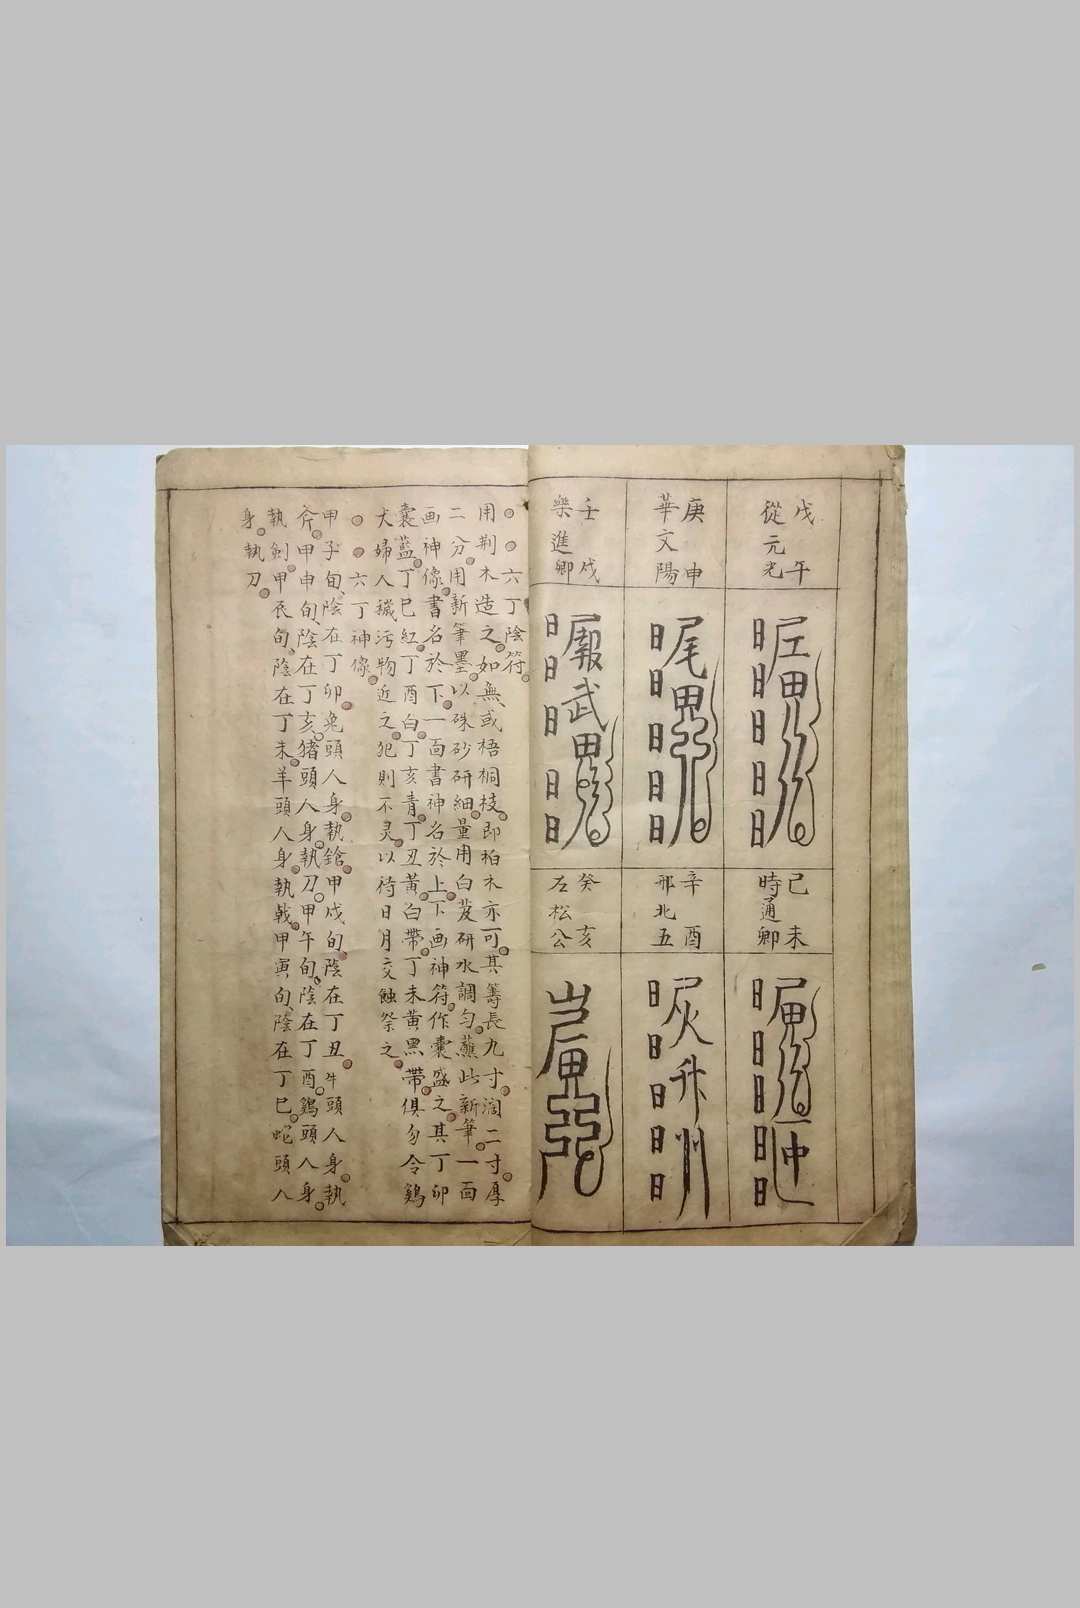 戊午
從元光
庚申
華文陽
壬戌
樂進卿
己未
時通卿
辛酉
邢北五
癸亥
左松公
日日日日日
日日日日日
日日日日日
日日日日日
日日日日日
六丁陰符
用荆木造之如無或梧桐枝即柏木亦可其籌長九寸濶二寸厚
二分用新筆墨以硃砂研細量用白芨研水調勻蘸此新筆一面
画神像書名於下一面書神名於上下画神符作囊盛之其丁卯
囊藍丁巳紅丁酉白丁亥青丁丑黃白帶丁未黃黑帶俱勿令鷄
犬婦人穢污物近之犯則不灵以待日月交蝕祭之
六丁神像
甲子旬陰在丁卯兔頭人身執鎗甲戌旬陰在丁丑牛頭人身執
斧甲申旬陰在丁亥猪頭人身執刀甲午旬陰在丁酉鷄頭人身
執劍甲辰旬陰在丁未羊頭人身執戟甲寅旬陰在丁巳蛇頭人
身執刀